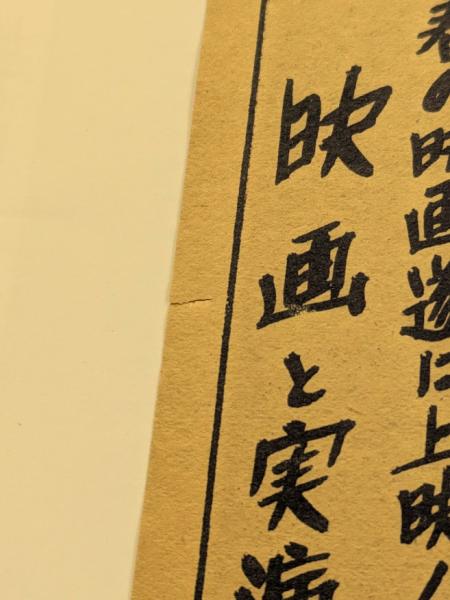 春の映画遂に上映
映画と実演